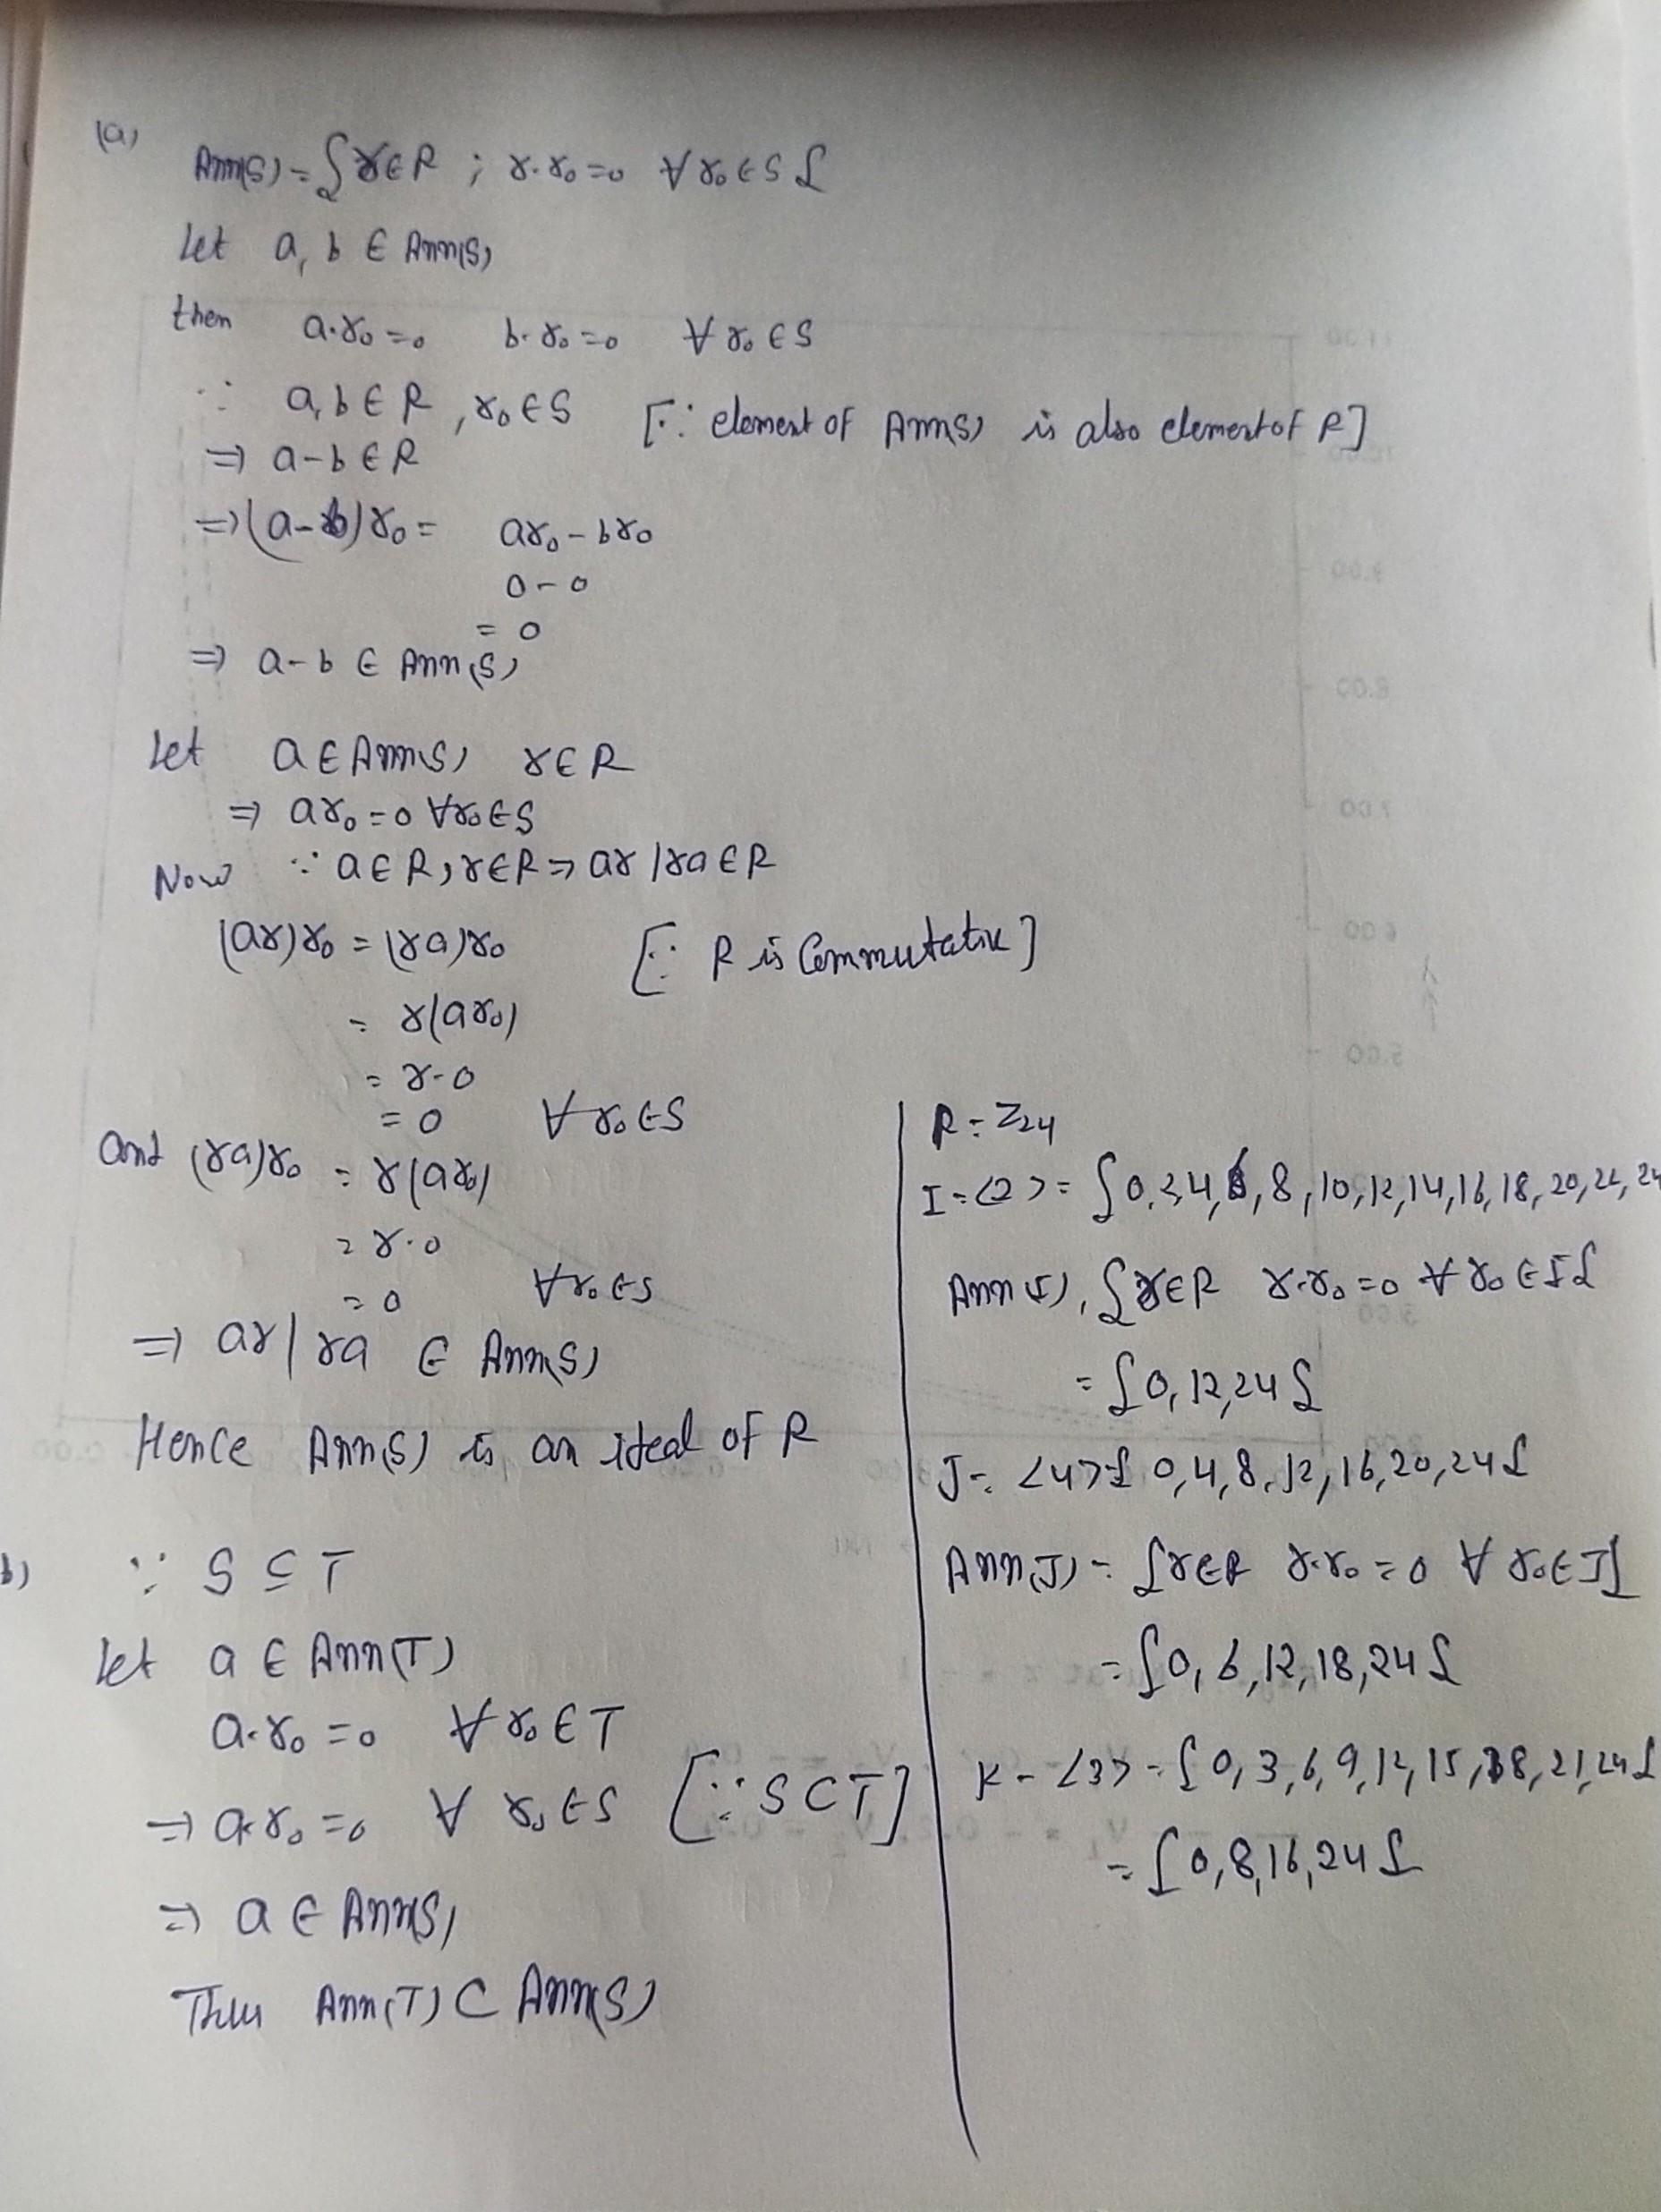 (a)
Ann(S) = { r ∈ R ; r·r₀ = 0 ∀ r₀ ∈ S }
Let a, b ∈ Ann(S)
then a·r₀ = 0 b·r₀ = 0 ∀ r₀ ∈ S
∵ a, b ∈ R , r₀ ∈ S [∵ element of Ann(S) is also element of R]
⇒ a-b ∈ R
⇒ (a-b) r₀ = ar₀ - br₀
0 - 0
= 0
⇒ a-b ∈ Ann(S)
Let a ∈ Ann(S) r ∈ R
⇒ ar₀ = 0 ∀ r₀ ∈ S
Now ∵ a ∈ R, r ∈ R ⇒ ar / ra ∈ R
(ar) r₀ = (ra) r₀ [∵ R is Commutative]
= r(ar₀)
= r·0
= 0 ∀ r₀ ∈ S
and (ra) r₀ = r(ar₀)
= r·0
= 0 ∀ r₀ ∈ S
⇒ ar / ra ∈ Ann(S)
Hence Ann(S) is an ideal of R
b) ∵ S ⊆ T
Let a ∈ Ann(T)
a·r₀ = 0 ∀ r₀ ∈ T
⇒ a·r₀ = 0 ∀ r₀ ∈ S [∵ S ⊂ T]
⇒ a ∈ Ann(S)
Thus Ann(T) ⊂ Ann(S)
R = Z₂₄
I = <2> = { 0, 2, 4, 6, 8, 10, 12, 14, 16, 18, 20, 22, 24
Ann(I) = { r ∈ R r·r₀ = 0 ∀ r₀ ∈ I }
= { 0, 12, 24 }
J = <4> = { 0, 4, 8, 12, 16, 20, 24 }
Ann(J) = { r ∈ R r·r₀ = 0 ∀ r₀ ∈ J }
= { 0, 6, 12, 18, 24 }
K = <3> = { 0, 3, 6, 9, 12, 15, 18, 21, 24 }
= { 0, 8, 16, 24 }